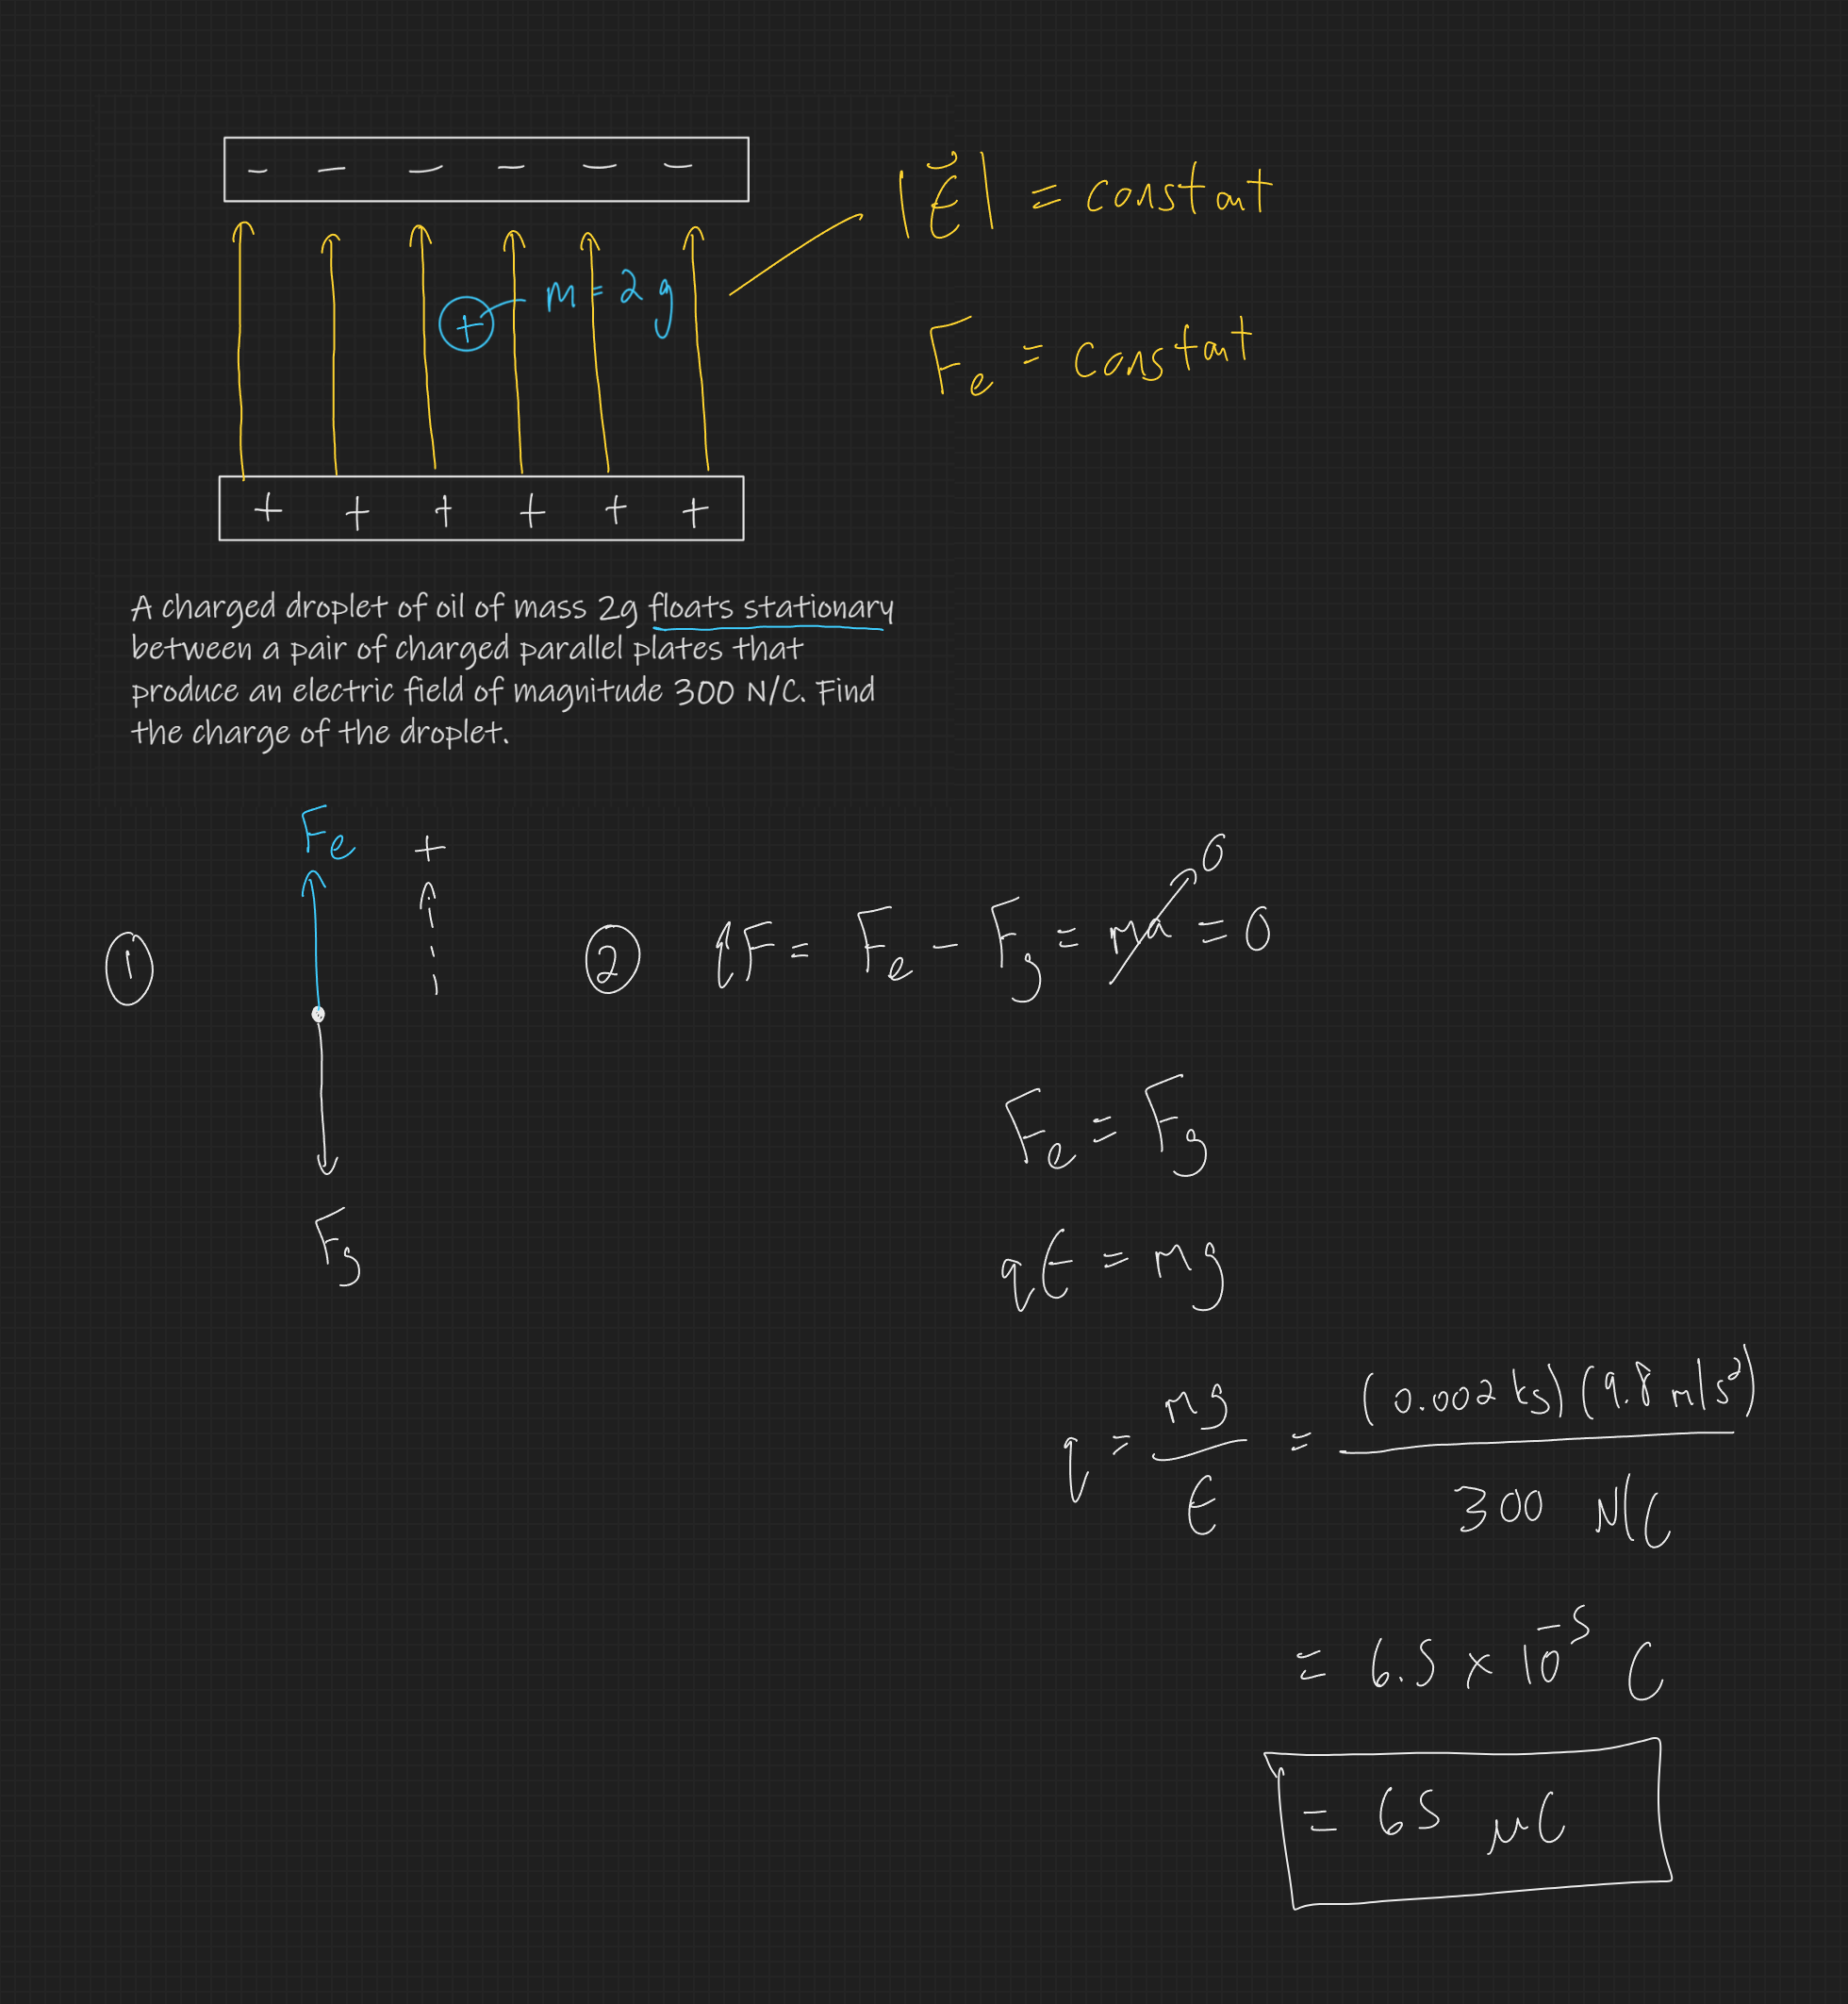 - - - - - -
|E⃗| = constant
m = 2 g
+
F_e = constant
+ + + + + +
A charged droplet of oil of mass 2g floats stationary
between a pair of charged parallel plates that
produce an electric field of magnitude 300 N/C. Find
the charge of the droplet.
F_e +
① ② qF = F_e - F_g = ma = 0
0
F_e = F_g
F_g
qE = mg
q = mg / E = (0.002 kg)(9.8 m/s²) / 300 N/C
= 6.5 × 10⁻⁵ C
= 65 μC